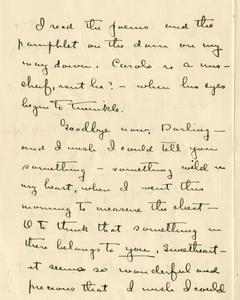 I read the poems and the
pamphlet on the dam on my
way down. Carols is a mis-
cheif, isn't he? - when his eyes
begin to twinkle.
Goodbye now, Darling -
and I wish I could tell you
something - something wild in
my heart, when I went this
morning to measure the chest -
O to think that something in
there belongs to you, sweetheart -
it seems so wonderful and
precious that I wish I could